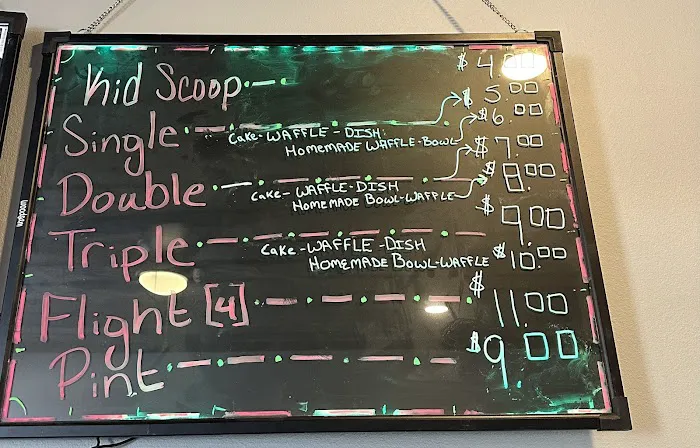 Kid Scoop $4.00
Single $5.00
Cake-WAFFLE-DISH
HOMEMADE WAFFLE-BOWL $6.00
Double $7.00
Cake-WAFFLE-DISH
HOMEMADE BOWL-WAFFLE $8.00
Triple $9.00
Cake-WAFFLE-DISH
HOMEMADE BOWL-WAFFLE $10.00
Flight [4] $11.00
Pint $9.00